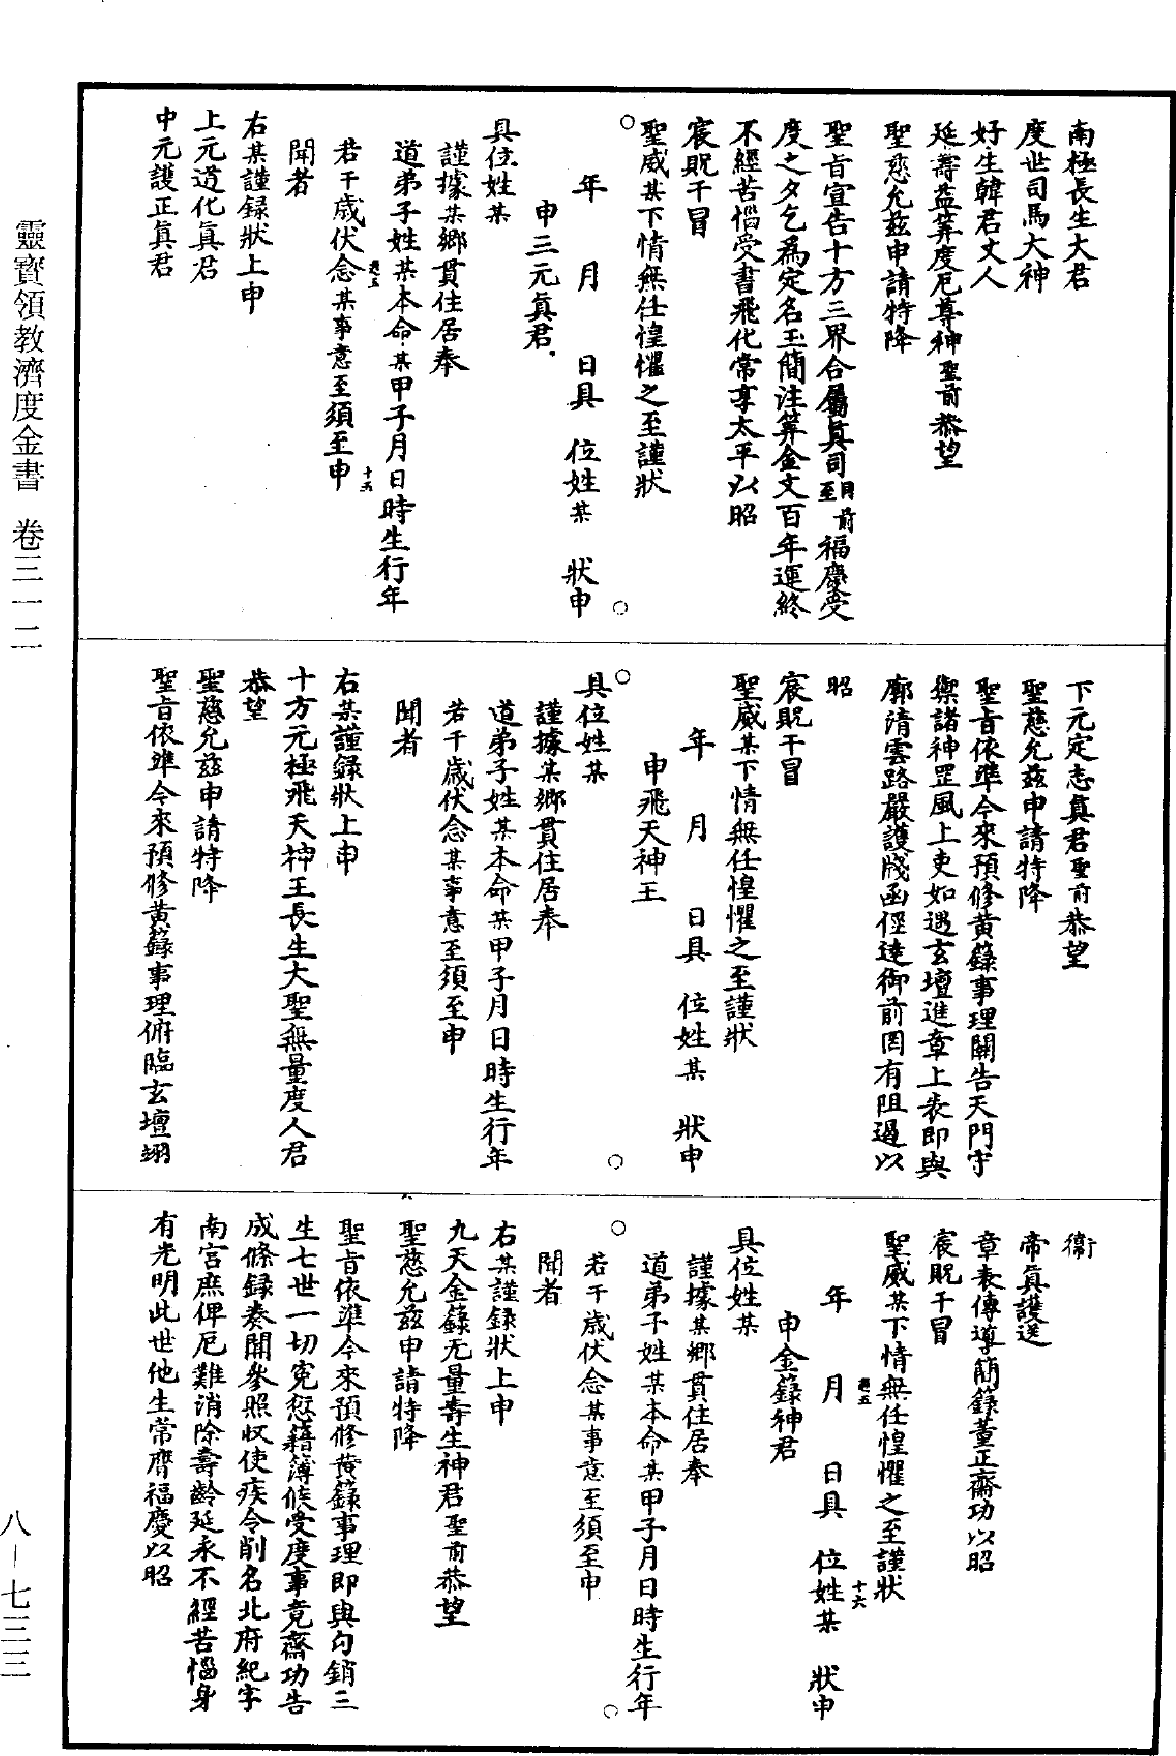 南極長生大君
度世司馬大神
好生韓君丈人
延壽益筭度厄尊神聖前恭望
聖慈允兹申請特降
聖旨宣告十方三界合屬真司同前至福慶受
度之夕乞為定名玉簡注筭金文百年運終
不經苦惱受書飛化常享太平以昭
宸貺干冒
聖威某下情無任惶懼之至謹狀
年 月 日具 位姓某 狀申
申三元真君
具位姓某
謹據某鄉貫住居奉
道弟子姓某本命某甲子月日時生行年
若干歲伏念某事意至須至申
十五
聞者
右某謹録狀上申
上元道化真君
中元護正真君
下元定志真君聖前恭望
聖慈允兹申請特降
聖旨依準今來預修黄籙事理關告天門守
禦諸神罡風上吏如遇玄壇進章上表即與
廓清雲路嚴護牋函徑達御前罔有阻遏以
昭
宸貺干冒
聖威某下情無任惶懼之至謹狀
年 月 日具 位姓某 狀申
申飛天神王
具位姓某
謹據某鄉貫住居奉
道弟子姓某本命某甲子月日時生行年
若干歲伏念某事意至須至申
聞者
右某謹録狀上申
十方元極飛天神王長生大聖無量度人君
恭望
聖慈允兹申請特降
聖旨依準今來預修黄籙事理俯臨玄壇翊
衛
帝真護送
章表傳導簡籙董正齋功以昭
宸貺干冒
聖威某下情無任惶懼之至謹狀
十六
年 月 日具 位姓某 狀申
申金籙神君
具位姓某
謹據某鄉貫住居奉
道弟子姓某本命某甲子月日時生行年
若干歲伏念某事意至須至申
聞者
右某謹録狀上申
九天金籙无量壽生神君聖前恭望
聖慈允兹申請特降
聖旨依準今來預修黄籙事理即與勾銷三
生七世一切寃愆籍簿候受度事竟齋功告
成條録奏聞參照收使疾令削名北府紀字
南宫庶俾厄難消除壽齡延永不經苦惱身
有光明此世他生常膺福慶以昭
靈寶領教濟度金書 卷三一二
八—七三三